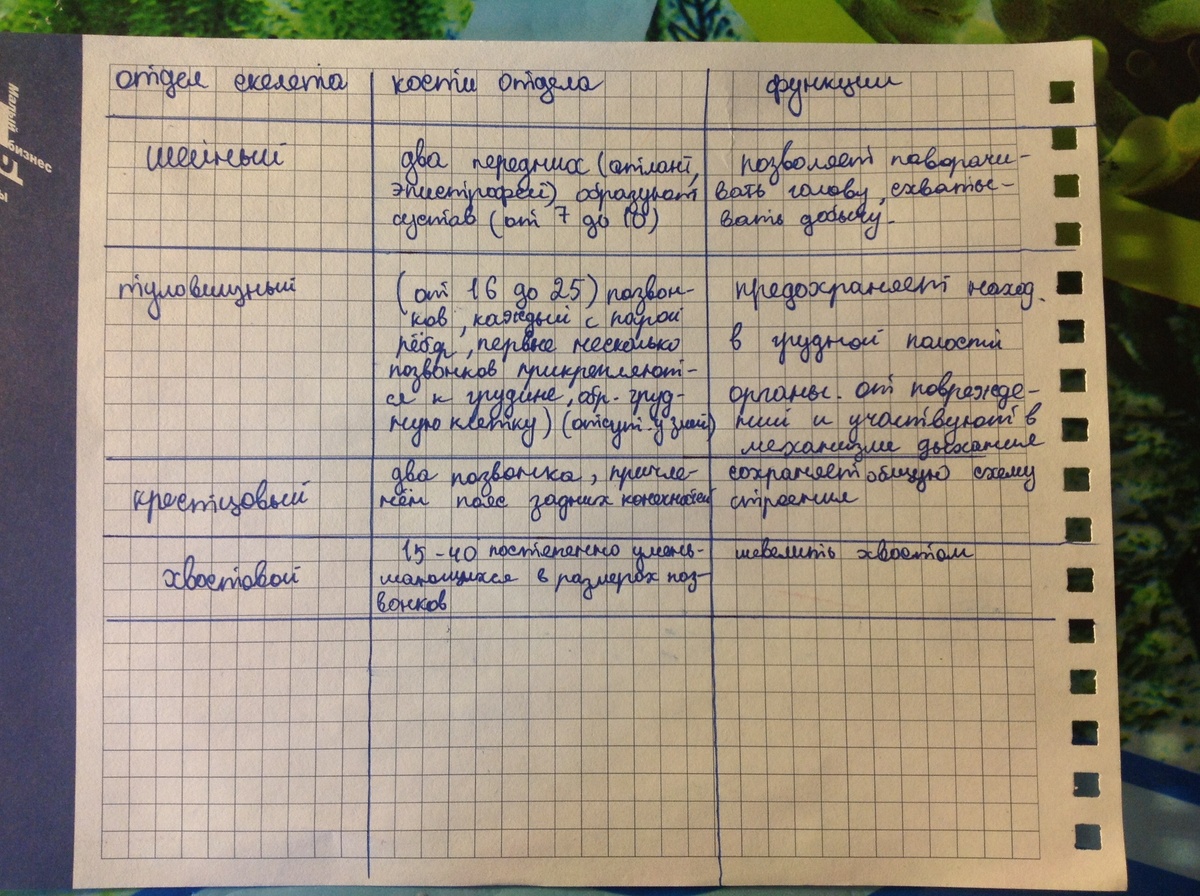 отдел скелета кости отдела функции
шейный
два передних (атлант,
эпистрофей) образуют
сустав (от 7 до 10)
позволяет поворачи-
вать голову, схваты-
вать добычу.
туловищный
(от 16 до 25) позвон-
ков, каждый с парой
рёбр, первые несколько
позвонков прикрепляют-
ся к грудине, обр. груд-
ную клетку) (отсут. у змей)
предохраняет наход.
в грудной полости
органы. от поврежде-
ний и участвуют в
механизме дыхания
крестцовый
два позвонка, причле-
нён пояс задних конечностей
сохраняет общую схему
строения
хвостовой
15-40 постепенно умень-
шающихся в размерах поз-
вонков
шевелить хвостом
Малый
бизнес